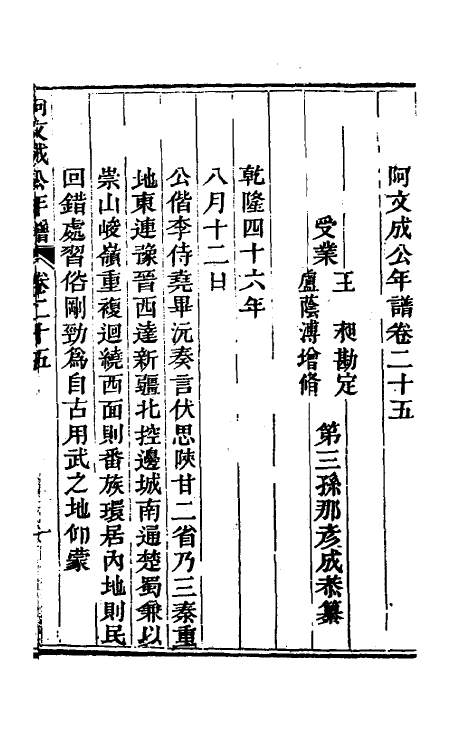 阿文成公年譜卷二十五
第三孫那彥成恭纂
受業
王昶勘定
盧蔭溥增脩
乾隆四十六年
八月十二日
公偕李侍堯畢沅奏言伏思陝甘二省乃三秦重
地東連豫晉西達新疆北控邊城南通楚蜀兼以
崇山峻嶺重複迴繞西面則番族環居內地則民
回錯處習俗剛勁爲自古用武之地仰蒙
阿文成公年譜 卷二十五